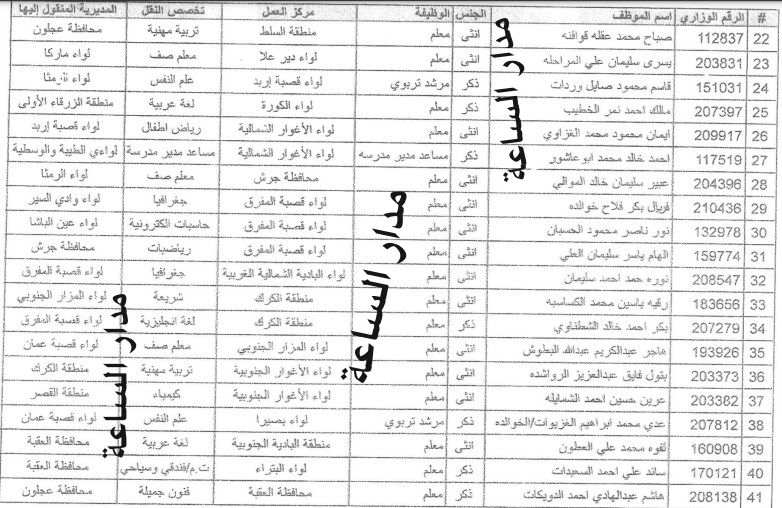 # الرقم الوزاري اسم الموظف الجنس الوظيفة مركز العمل تخصص النقل المديرية المنقول إليها
22 112837 صباح محمد عقله قواقنه انثى معلم منطقة السلط تربية مهنية محافظة عجلون
23 203831 يسرى سليمان علي المراحله انثى معلم لواء دير علا معلم صف لواء ماركا
24 151031 قاسم محمود صايل وردات ذكر مرشد تربوي لواء قصبة إربد علم النفس لواء الرمثا
25 207397 مالك احمد نمر الخطيب ذكر معلم لواء الكورة لغة عربية منطقة الزرقاء الأولى
26 209917 ايمان محمود محمد الغزاوي انثى معلم لواء الأغوار الشمالية رياض اطفال لواء قصبة إربد
27 117519 احمد خالد محمد ابوعاشور ذكر مساعد مدير مدرسه لواء الأغوار الشمالية مساعد مدير مدرسة لواءي الطيبة والوسطية
28 204396 عبير سليمان خالد الموالي انثى معلم محافظة جرش معلم صف لواء الرمثا
29 210436 فريال بكر فلاح خوالده انثى معلم لواء قصبة المفرق جغرافيا لواء وادي السير
30 132978 نور ناصر محمود الحسبان انثى معلم لواء قصبة المفرق حاسبات الكترونية لواء عين الباشا
31 159774 الهام ياسر سليمان العلي انثى معلم لواء قصبة المفرق رياضيات محافظة جرش
32 208547 نوره حمد احمد سليمان انثى معلم لواء البادية الشمالية الغربية جغرافيا لواء قصبة المفرق
33 183656 رقيه ياسين محمد الكساسبه انثى معلم منطقة الكرك شريعة لواء المزار الجنوبي
34 207279 بكر احمد خالد الشطناوي ذكر معلم منطقة الكرك لغة انجليزية لواء قصبة المفرق
35 193926 هاجر عبدالكريم عبدالله البطوش انثى معلم لواء المزار الجنوبي معلم صف لواء قصبة عمان
36 203373 بتول فايق عبدالعزيز الرواشده انثى معلم لواء الأغوار الجنوبية تربية مهنية منطقة الكرك
37 203382 عرين حسين احمد الشمايله انثى معلم لواء الأغوار الجنوبية كيمياء منطقة القصر
38 207812 عدي محمد ابراهيم الغزيوات/الخوالده ذكر مرشد تربوي لواء بصيرا علم النفس لواء قصبة عمان
39 160908 تقوه محمد علي العطون انثى معلم منطقة البادية الجنوبية لغة عربية محافظة العقبة
40 170121 سائد علي احمد السعيدات ذكر معلم لواء البتراء ت.م/فندقي وسياحي محافظة العقبة
41 208138 هاشم عبدالهادي احمد الدويكات ذكر معلم محافظة العقبة فنون جميلة محافظة عجلون
مدار الساعة
مدار الساعة
مدار الساعة